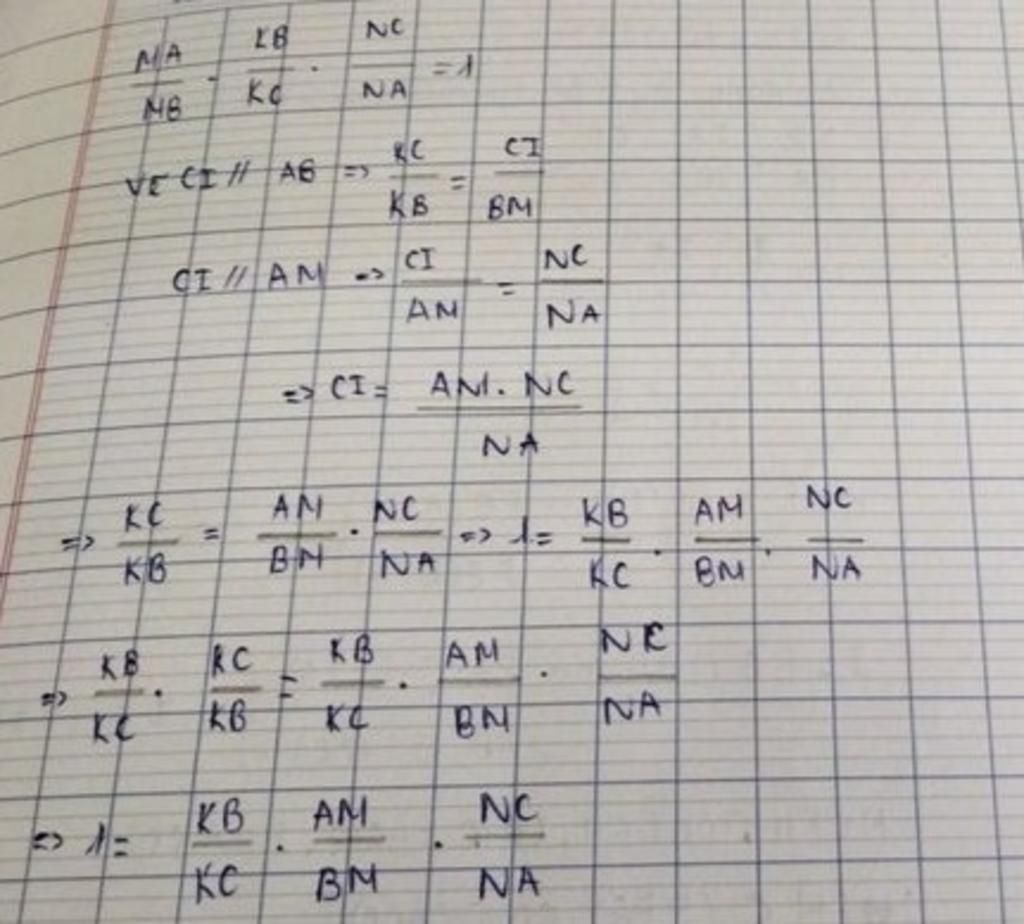 MA/MB · KB/KC · NC/NA = 1
VẼ CI // AB => KC/KB = CI/BM
CI // AM => CI/AM = NC/NA
=> CI = AM. NC/NA
=> KC/KB = AM/BM · NC/NA => 1 = KB/KC · AM/BM · NC/NA
=> KB/KC · KC/KB = KB/KC · AM/BM · NC/NA
=> 1 = KB/KC · AM/BM · NC/NA